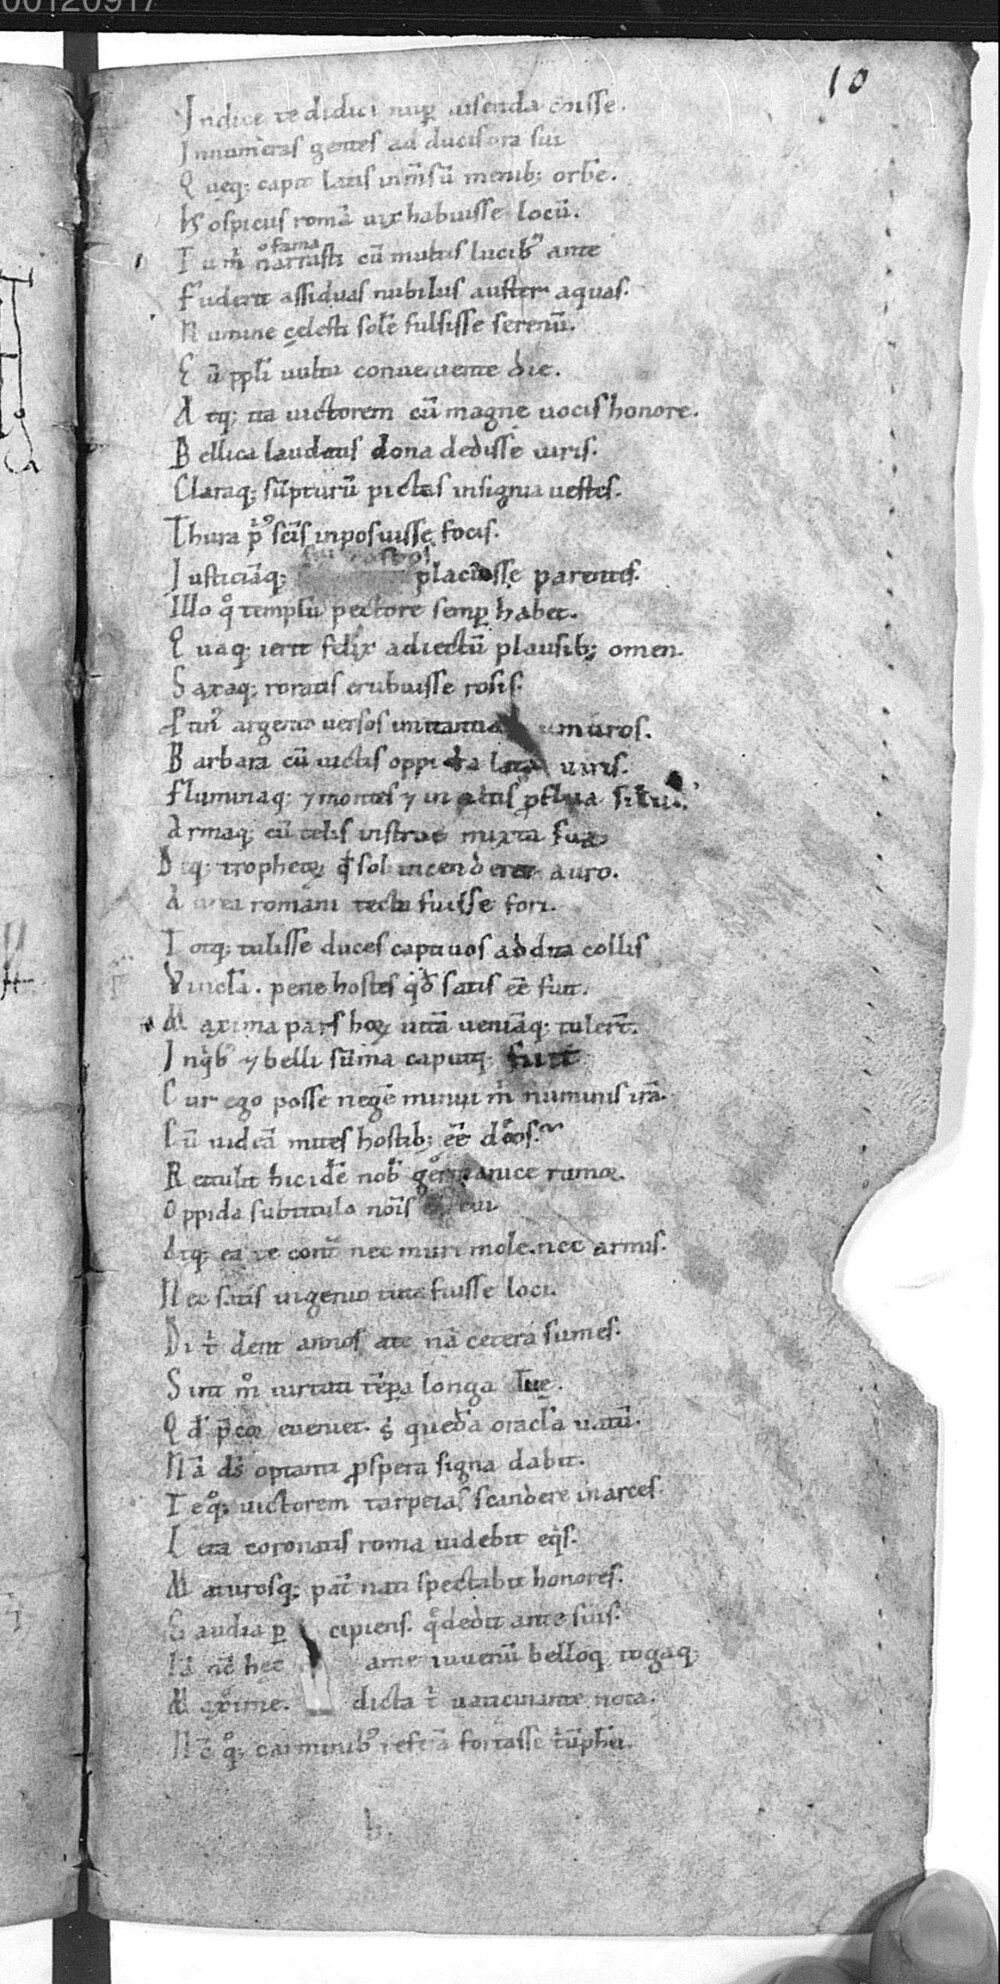 00120917
10
Indice te didici nup̄ uisenda coisse.
Innumeras gentes ad ducis ora sui
Quęq; capit latis inm̄sū menib; orbē.
Hospitiis romā uix habuisse locū.
Tu m̄ narrasti cū multis lucib᾽ ante
o fama
Fuderit assiduas nubilus auster aquas.
Numine cęlesti solē fulsisse serenū.
Cū ppl̄i uultu conueniente die.
Atq; ita uictorem cū magnę uocis honore.
Bellica laudatis dona dedisse uiris.
Claraq; sūpturū pictas insignia uestes.
Thura p᾽ sc̄is inposuisse focis.
Iusticiāq; placuisse parentis.
Illo q̊ templū pectore semp̄ habet.
Quaq; ierit felix adiectū plausib; omen.
Saxaq; roratis erubuisse rosis.
argento uersos imitantia muros.
Barbara cū uictis oppida lata uiris.
Fluminaq; ⁊ montes ⁊ in altis p̄flua siluis.
Armaq; cū telis in strue mixta sua
Deq; tropheoꝝ q̄ sol incenderet auro.
Aurea romani tecta fuisse fori.
Totq; tulisse duces captiuos addita collis
Vincl̄a. pene hostes qd̄ satis eē fuit.
Maxima pars hoꝝ uitā ueniāq; tulert̄.
In qib᾽ ⁊ belli sūma caputq; fuit
Cur ego posse negē minui m̄ numinis irā.
Cū uideā mites hostib; eē deos.
Rettulit hic idē nob̄ germanice rumor.
Oppida sub titulo nōis
Atq; ea te cont̄ nec muri mole. nec armis.
Nec satis ingenio tuta fuisse loci.
Di t̄ dent annos ate nā cetera sumes.
Sint m̊ uirtuti tēpa longa tuę.
Qd̄ p̄cor eueniet. ṡ quedā oracl̄a uatū.
Nā ds̄ optanti p̄spera signa dabit.
Teq̊; uictorem tarpeias scandere in arces.
Leta coronatis roma uidebit eq̄s.
Maturosq; pat̄ nati spectabit honores.
Gaudia p̄ cipiens. q̊ dedit ante suis.
Iā nē hęc ame iuuenū belloq; togaq;
Maxime. dicta t̄ uaticinante nota.
Nc̄ q̊; carminib᾽ referā fortasse t̄ūphū.